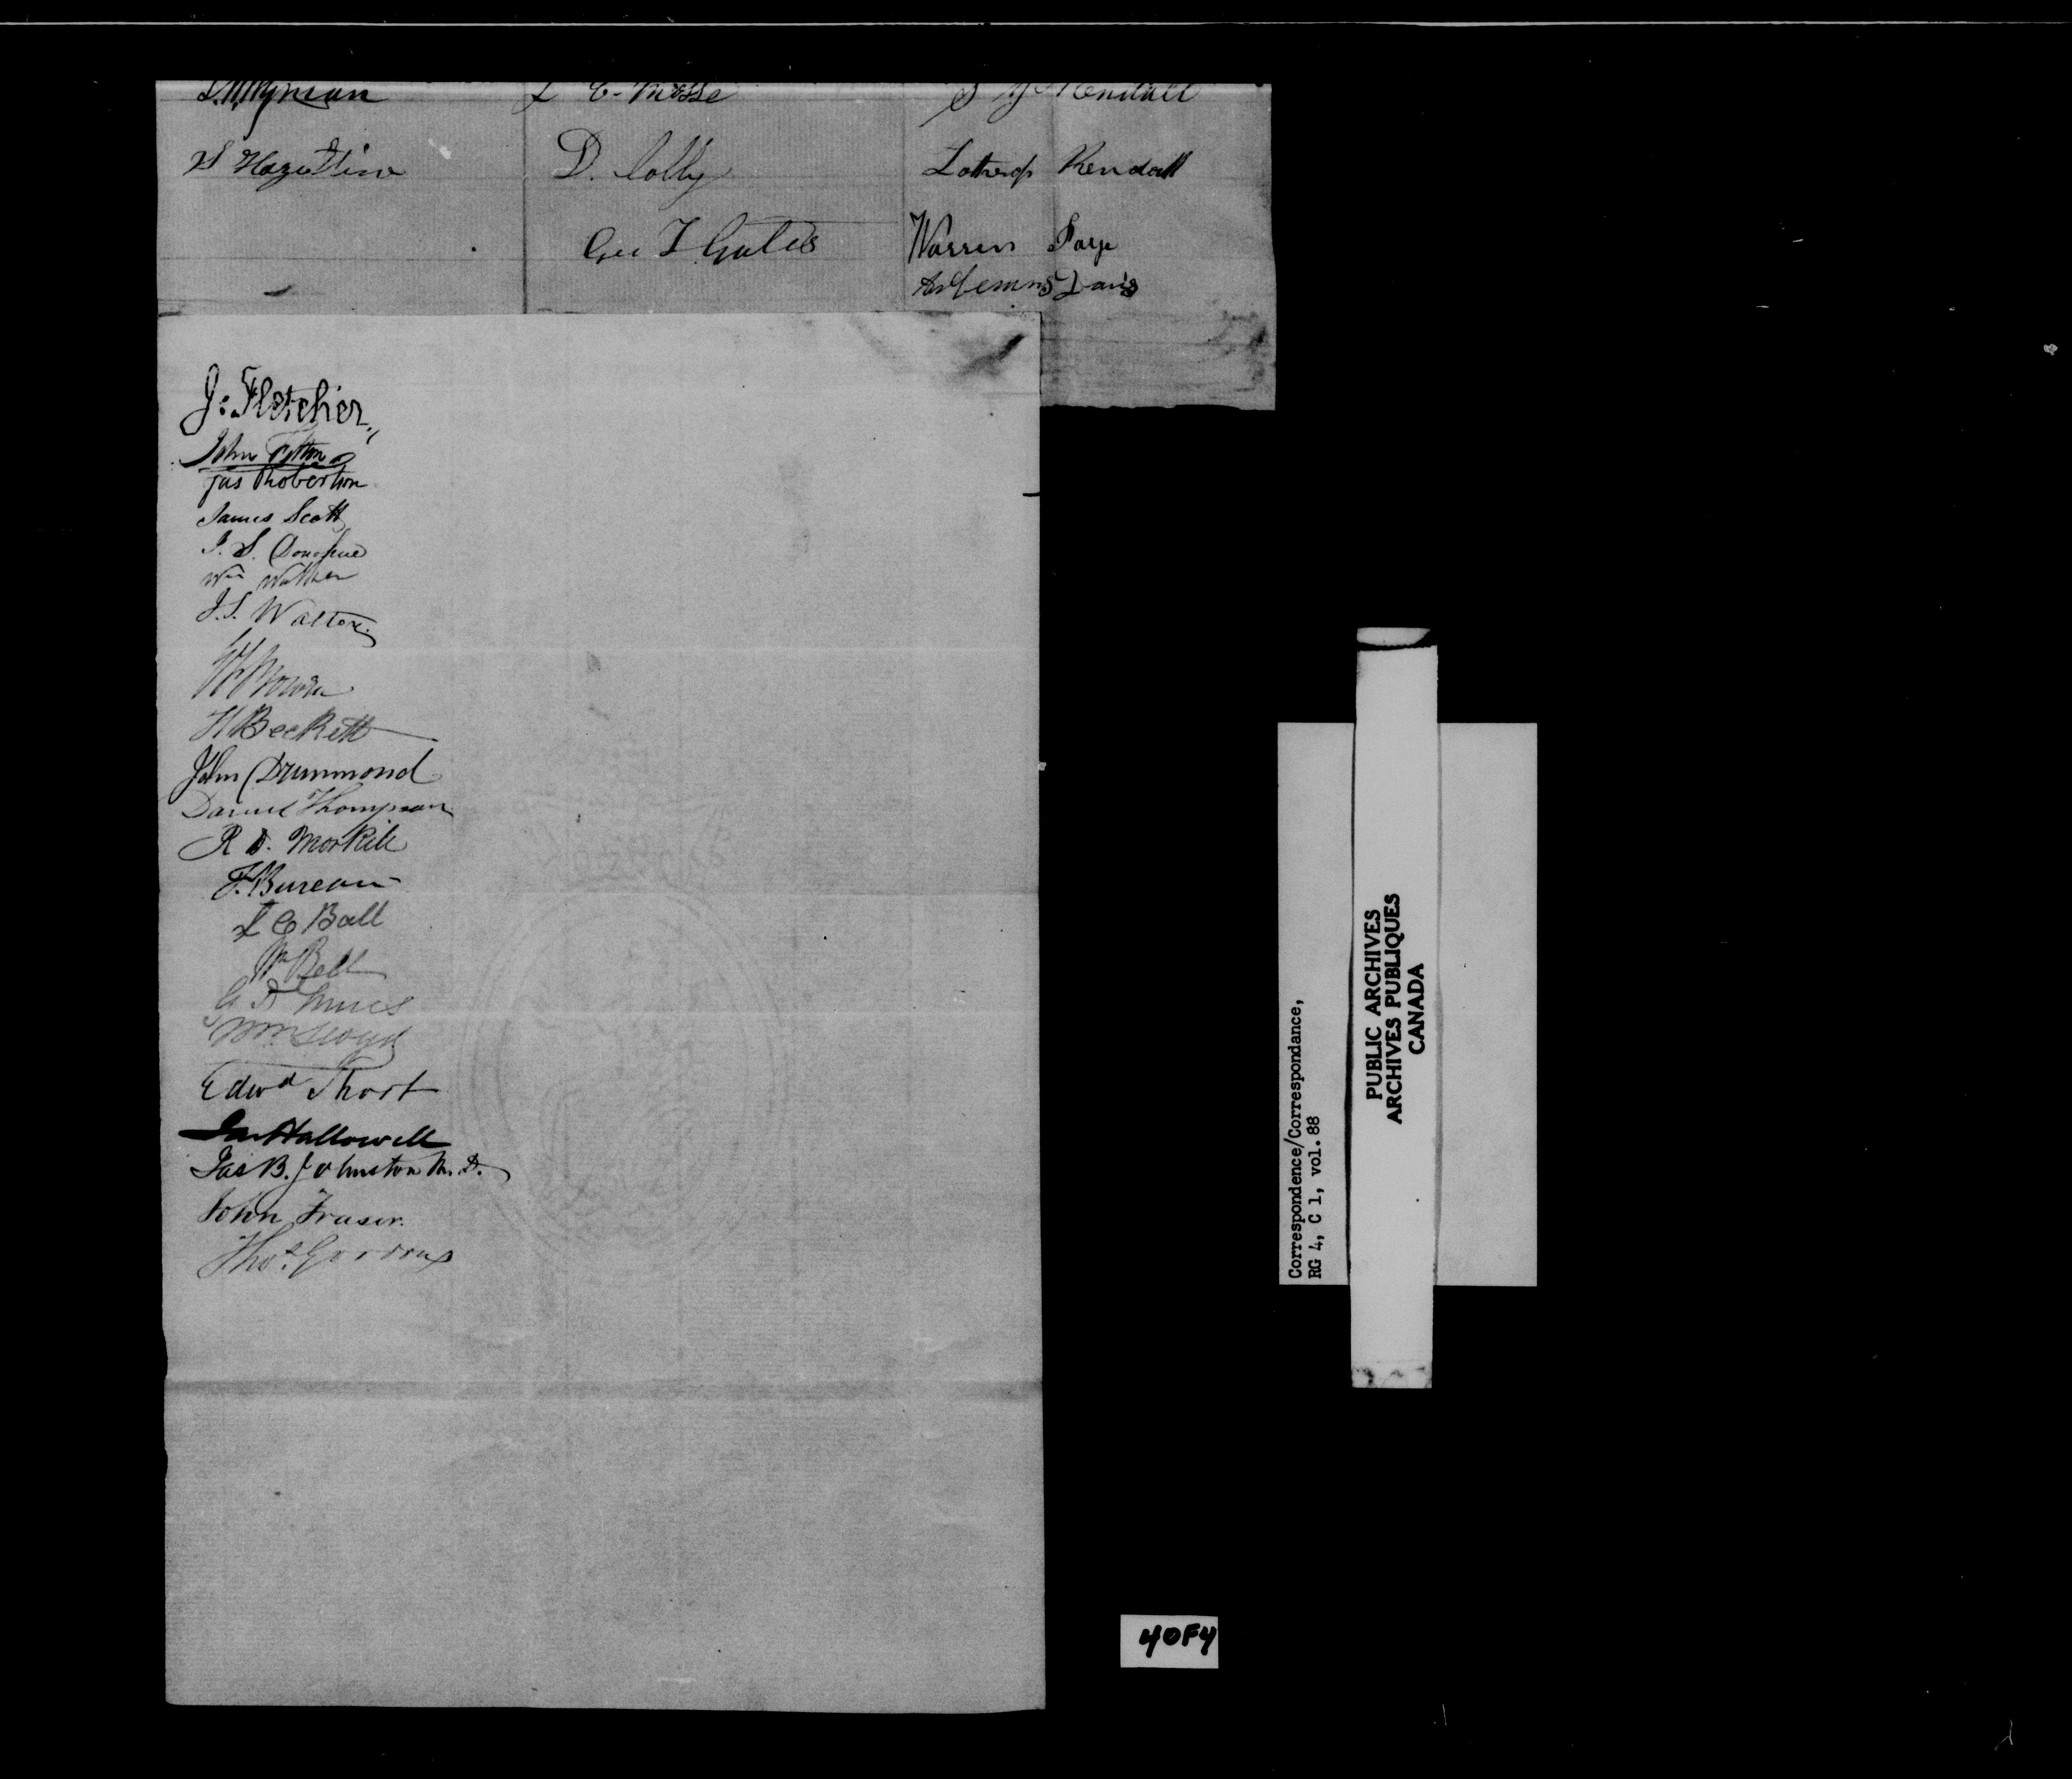 L. C. Mosse
S Y Kendall
S Hazeltine
D. Colby
Lothrop Kendall
Geo F Gates
Warren Page
Artemus Davis
J. Fletcher
John
Jas Robertson
James Scott
J. S. Donohue
Wm Walker
J. S. Walton
Brown
H Beckett
John Drummond
Daniel Thompson
R D. Morkill
F. Bureau
L C Ball
Wm Bell
G. F.
Wm Lloyd
Edwd Short
Hallowell
Jas B. Johnston M. D.
John Fraser.
Thos.
Correspondence/Correspondance,
RG 4, C 1, vol. 88
PUBLIC ARCHIVES
ARCHIVES PUBLIQUES
CANADA
4 OF 4